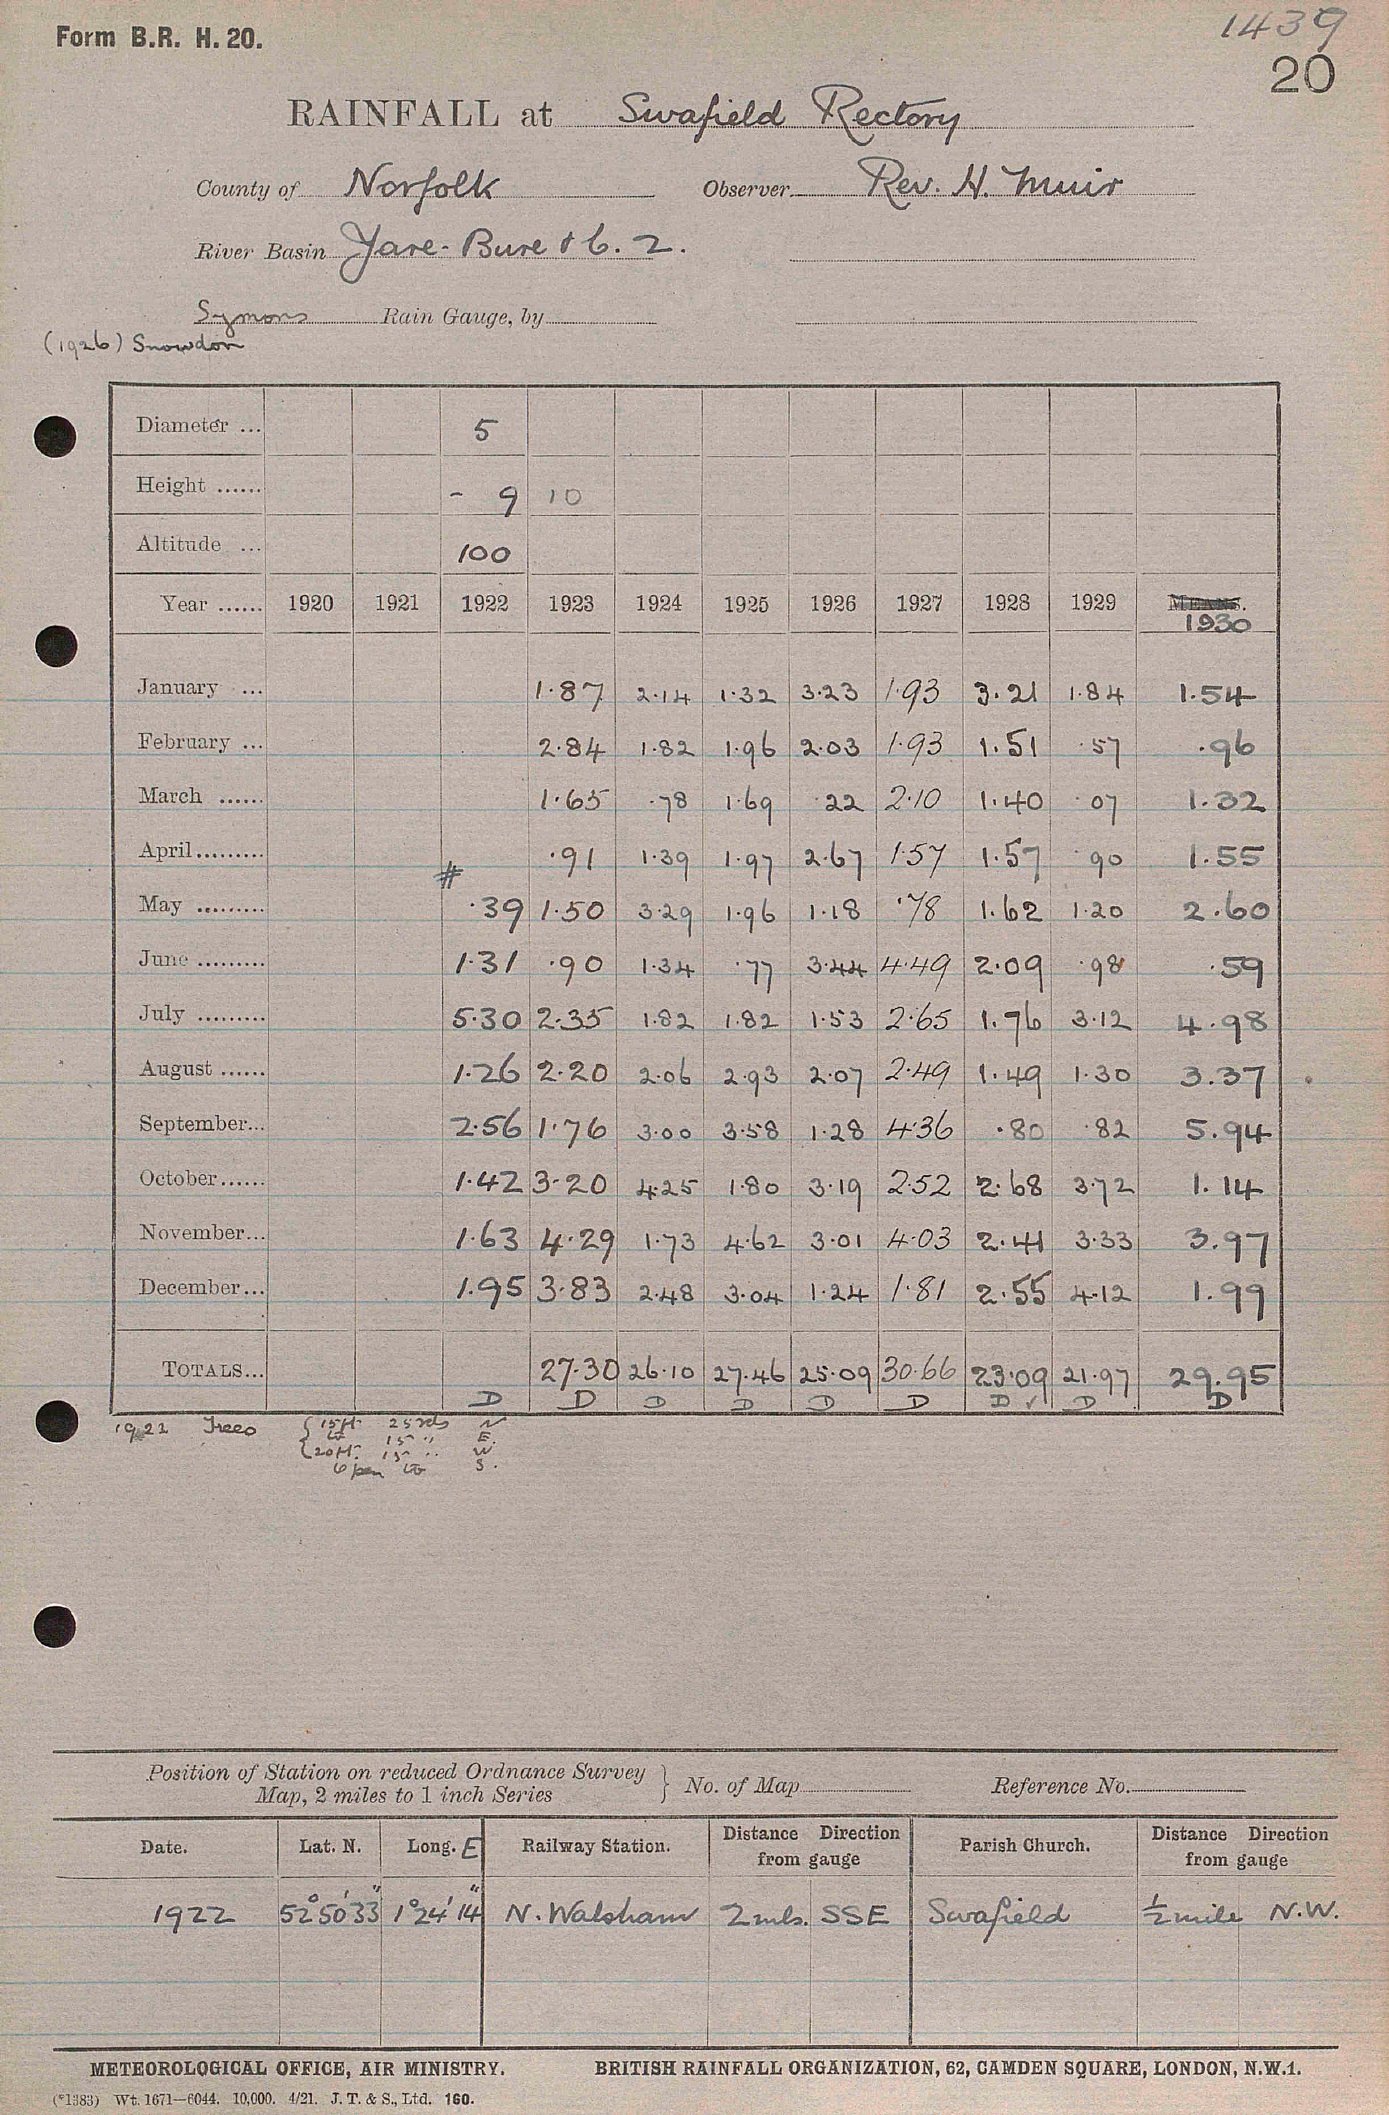 Form B.R. H. 20.
1439
20
RAINFALL at Swafield Rectory
County of Norfolk Observer Rev. H. Muir
River Basin Yare-Bure & 6. 2.
Symons Rain Gauge, by
(1926) Snowdon
Diameter ... 5
Height ...... - 9 10
Altitude ... 100
Year ...... 1920 1921 1922 1923 1924 1925 1926 1927 1928 1929 MEANS.
1930
January ... 1.87 2.14 1.32 3.23 1.93 3.21 1.84 1.54
February ... 2.84 1.82 1.96 2.03 1.93 1.51 .57 .96
March ...... 1.65 .78 1.69 .22 2.10 1.40 .07 1.32
April......... .91 1.39 1.97 2.67 1.57 1.57 .90 1.55
#
May ......... .39 1.50 3.29 1.96 1.18 .78 1.62 1.20 2.60
June ......... 1.31 .90 1.34 .77 3.44 4.49 2.09 .98 .59
July ......... 5.30 2.35 1.82 1.82 1.53 2.65 1.76 3.12 4.98
August ...... 1.26 2.20 2.06 2.93 2.07 2.49 1.49 1.30 3.37
September... 2.56 1.76 3.00 3.58 1.28 4.36 .80 .82 5.94
October...... 1.42 3.20 4.25 1.80 3.19 2.52 2.68 3.72 1.14
November... 1.63 4.29 1.73 4.62 3.01 4.03 2.41 3.33 3.97
December... 1.95 3.83 2.48 3.04 1.24 1.81 2.55 4.12 1.99
TOTALS... 27.30 26.10 27.46 25.09 30.66 23.09 21.97 29.95
D D D D D D D ✓ D D
1922 Trees { 15ft. 25 yds N
to 15 " E.
{ 20ft. 15 " W.
Open to S.
Position of Station on reduced Ordnance Survey
Map, 2 miles to 1 inch Series } No. of Map Reference No.
Date. Lat. N. Long. E Railway Station. Distance Direction from gauge Parish Church. Distance Direction from gauge
1922 52° 50' 33" 1° 24' 14" N. Walsham 2 mls. SSE Swafield ½ mile N.W.
METEOROLOGICAL OFFICE, AIR MINISTRY. BRITISH RAINFALL ORGANIZATION, 62, CAMDEN SQUARE, LONDON, N.W.1.
(*1383) Wt. 1671—6044. 10,000. 4/21. J. T. & S., Ltd. 160.